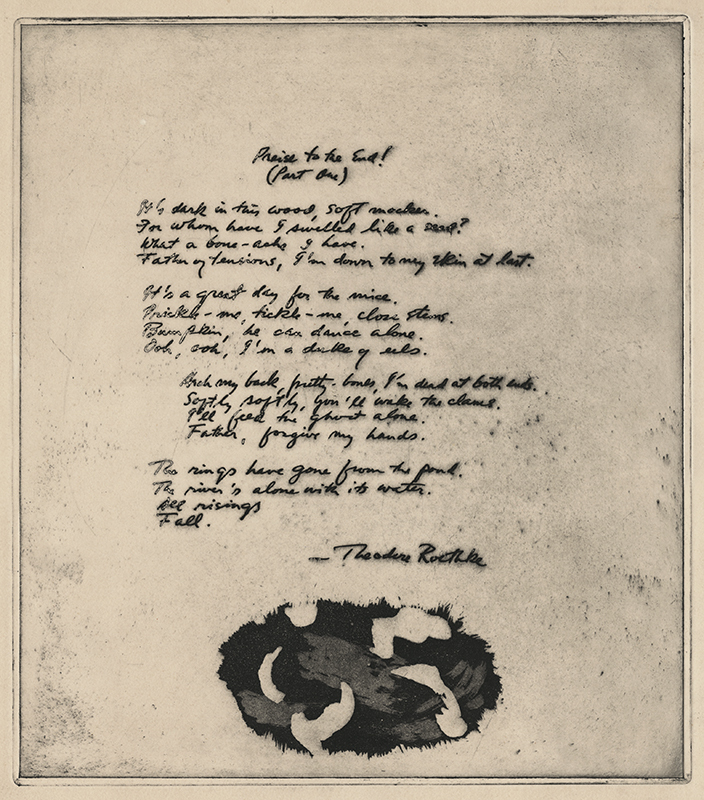 Praise to the End!
(Part One)
It's dark in this wood, soft mocker.
For whom have I swelled like a seed?
What a bone-ache I have.
Father of tensions, I'm down to my skin at last.
It's a great day for the mice.
Prickle-me, tickle-me, close stems.
Bumpkin, he can dance alone.
Ooh, ooh, I'm a duke of eels.
Arch my back, pretty-bones, I'm dead at both ends.
Softly softly, you'll wake the clams.
I'll feed the ghost alone.
Father, forgive my hands.
The rings have gone from the pond.
The river's alone with its water.
All risings
Fall.
— Theodore Roethke